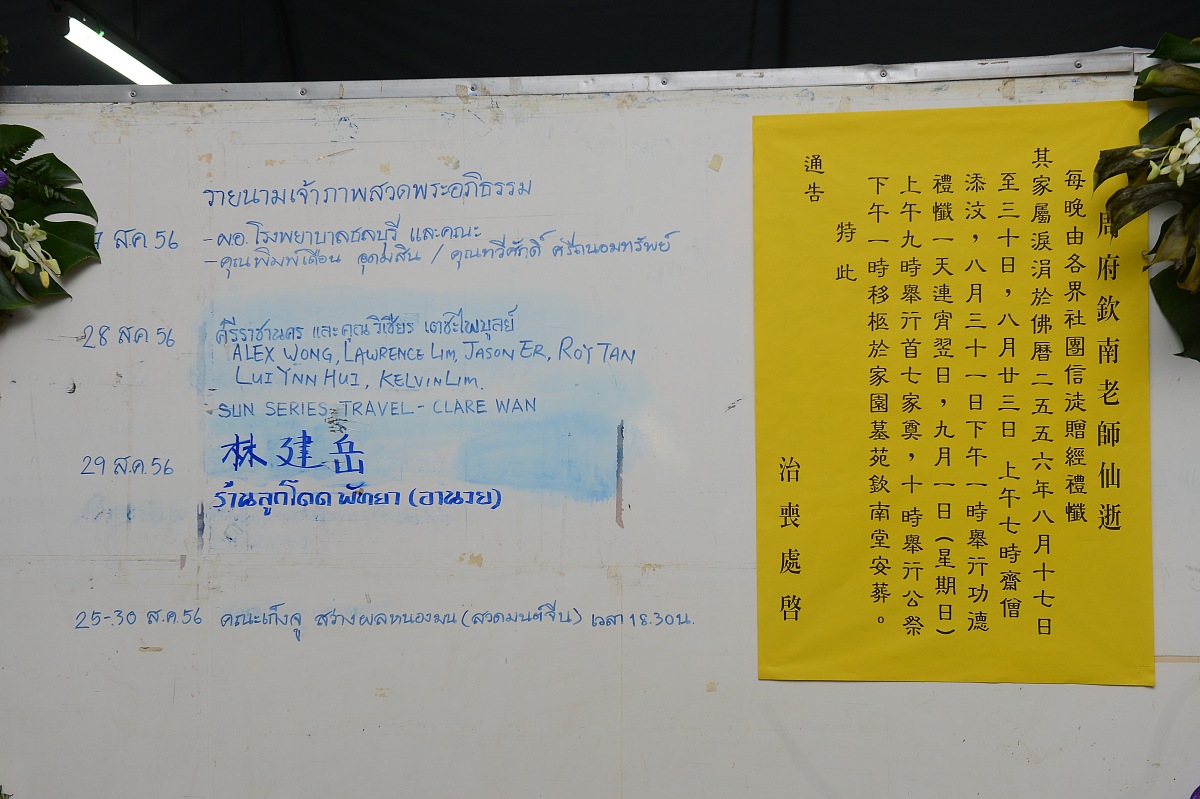 รายนามเจ้าภาพสวดพระอภิธรรม
7 ส.ค. 56 - ผอ. โรงพยาบาลชลบุรี และคณะ
- คุณพิมพ์เดือน อุดมสิน / คุณทวีศักดิ์ ศรีถนอมทรัพย์
28 ส.ค. 56 ศรีราชานคร และคุณวิเชียร เตชะไพบูลย์
ALEX WONG, LAWRENCE LIM, JASON ER, ROY TAN
LUI YNN HUI, KELVIN LIM.
- SUN SERIES TRAVEL - CLARE WAN
29 ส.ค. 56 林建岳
ร้านลูกโดด พัทยา (อานวย)
25-30 ส.ค. 56 คณะเก็งจู สว่างผลหนองมน (สวดมนต์จีน) เวลา 18.30 น.
周府欽南老師仙逝
每晚由各界社團信徒贈經禮懺
其家屬淚涓於佛曆二五五六年八月十七日
至三十日，八月廿三日 上午七時齋僧
添汶，八月三十一日下午一時舉行功德
禮懺一天連宵翌日，九月一日(星期日)
上午九時舉行首七家奠，十時舉行公祭
下午一時移柩於家園墓苑欽南堂安葬。
特此
通告
治喪處啓